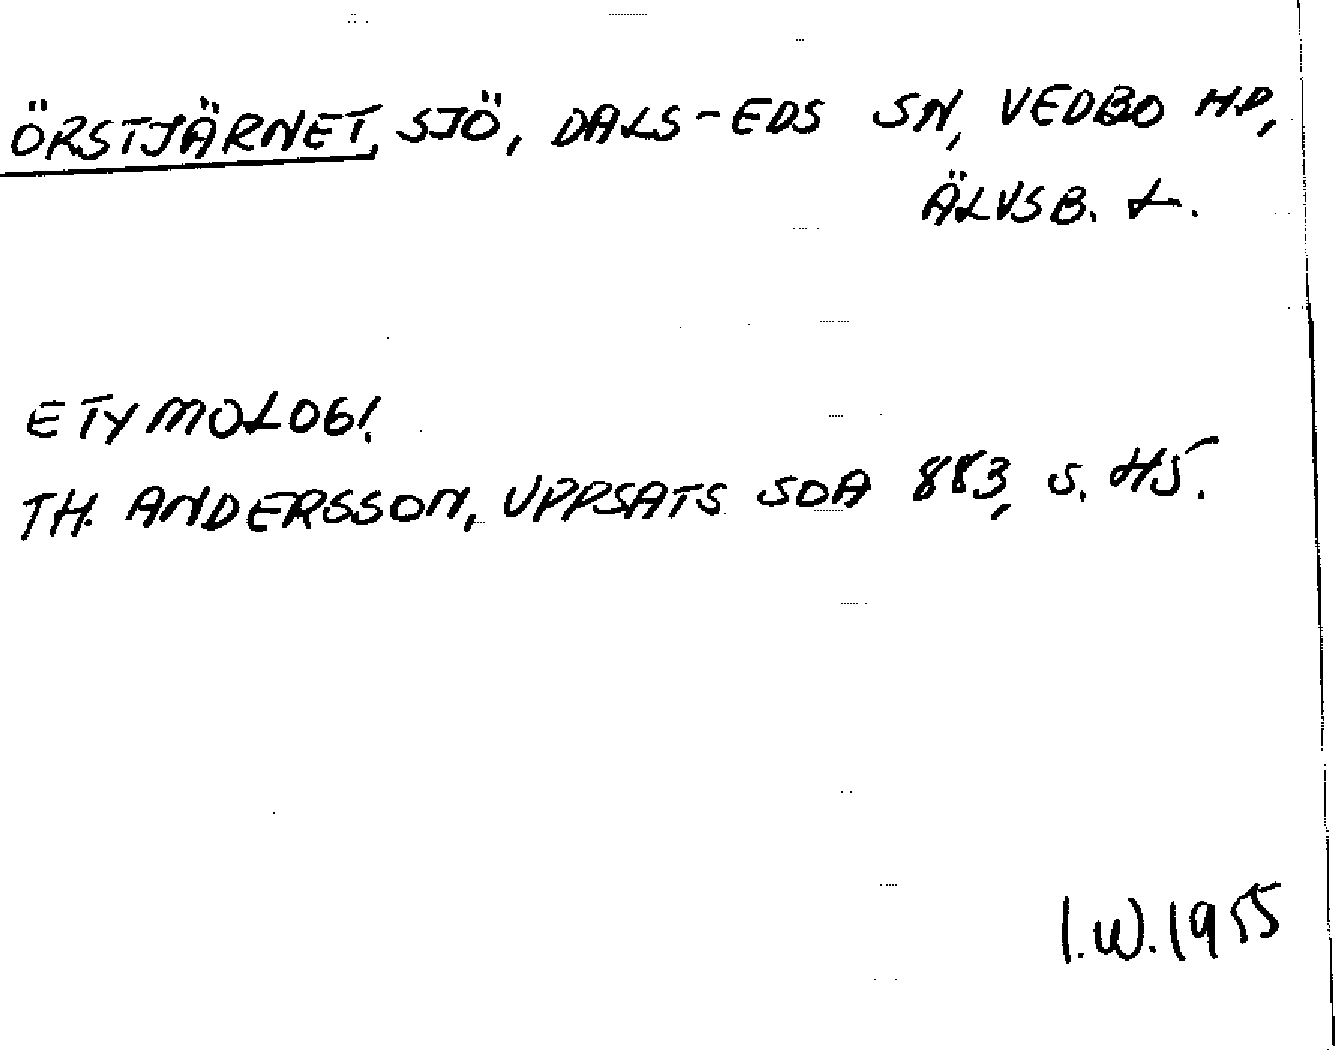 ÖRSTJÄRNET, SJÖ, DALS-EDS SN, VEDBO HD,
ÄLVSB. L.
ETYMOLOGI.
TH. ANDERSSON, UPPSATS SOA 883, S. 45.
I.W. 1955